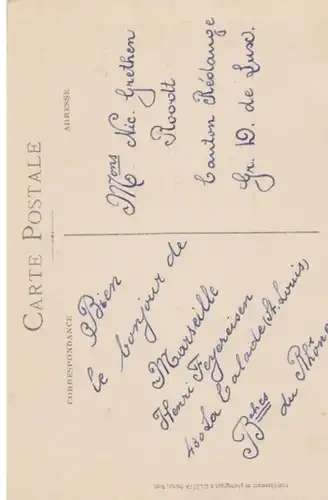 CARTE POSTALE
CORRESPONDANCE
ADRESSE
Bien
le bonjour de
Marseille
Henri Feyereisen
480 La Calade (St. Louis)
Bches
du Rhône
Mons Nic. Grethen
Roodt
Canton Rédange
Gr. D. de Lux.